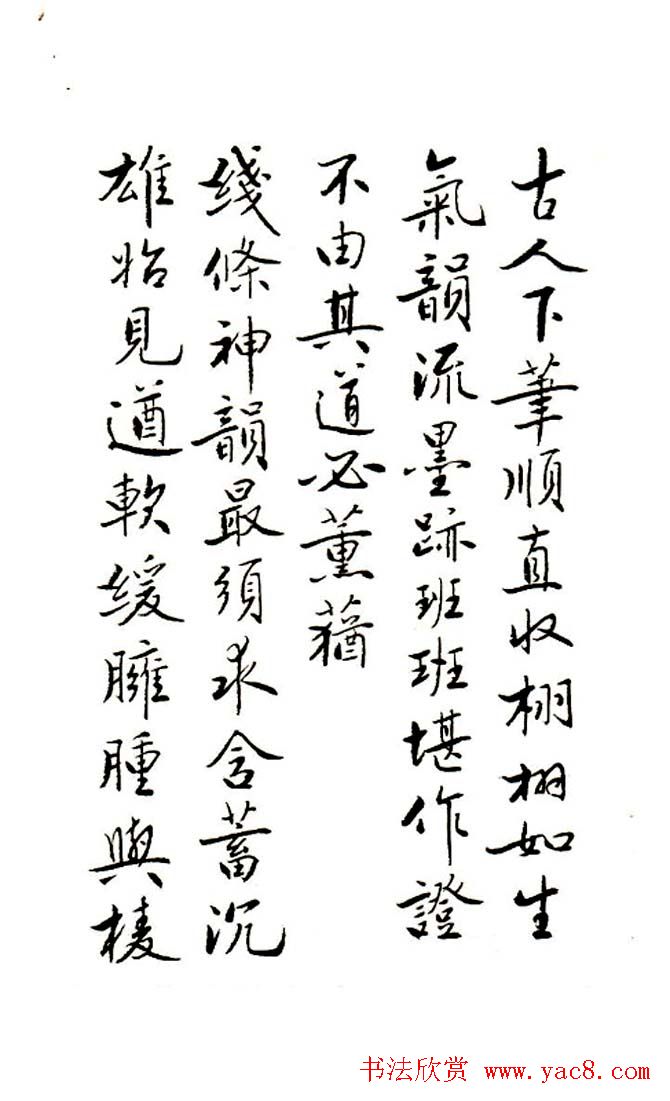 古人下筆順直收栩栩如生
氣韻流墨跡班班堪作證
不由其道必薰蕕
綫條神韻最須求含蓄沉
雄始見遒軟緩臃腫與棱
书法欣赏 www.yac8.com